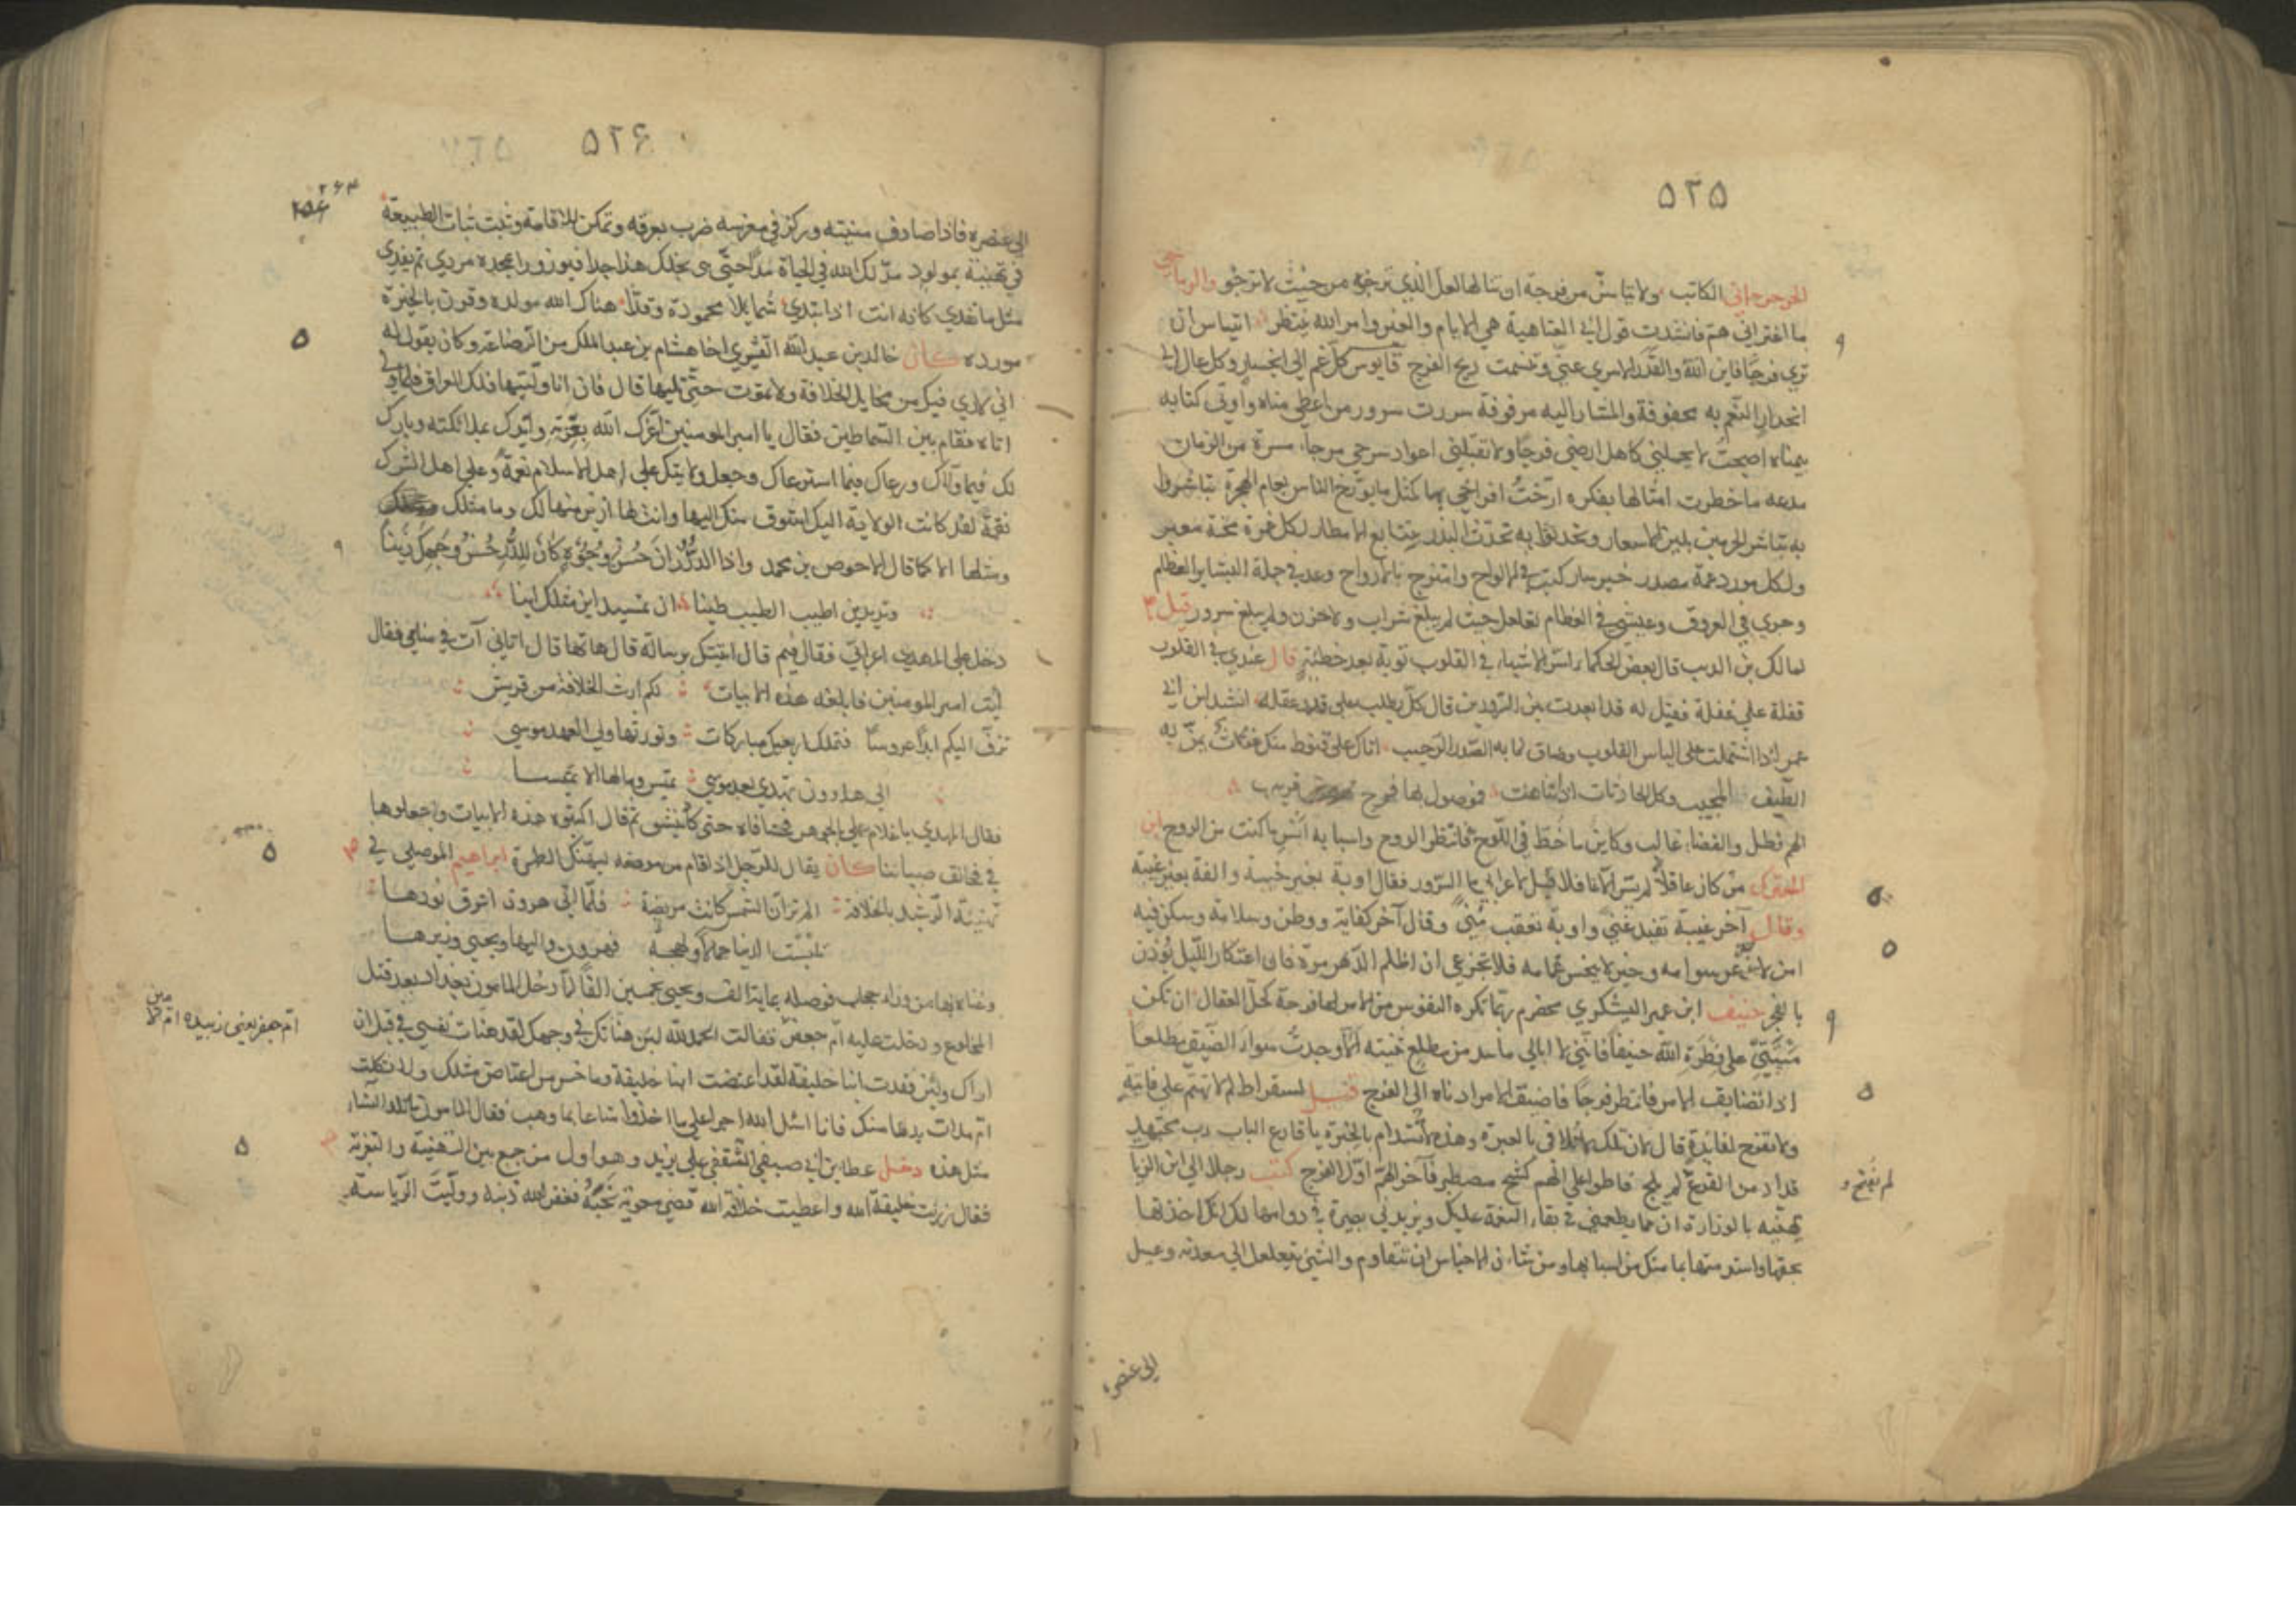 ٥٢٥
الجرجراني الكاتب ولا تيأسن من فرجة ان تنالها لعل الذي ترجوه من حيث لا ترجو والرياحي
ما اعتراني هم فانشدت قول ابي العتاهية هي الايام والعبر وامر الله ينتظر اتيأس ان
تري فرجا فاين الله والقدر الا سري عني وتنسمت ريح الفرج قابوس كل غم الي انحسار وكل عال الي
انحدار النعم به محفوفة والمشار اليه مرفوفة سررت سرور من اعطي مناه واوتي كتابه
بيمناه اصبحت لا يحملني كاهل ارضي فرحا ولا تقبلني اعواد سرجي مرحا مسرة من الزمان
مدعه ما خطرت امثالها بفكره ارخت افراحي بها كمثل ما يورخ الناس بعام الهجرة تباشروا
به تباشر المجدبين بلين الاسعار وتحدثوا به تحدث البدو بتتابع الامطار لكل غمرة محنة معبر
ولكل مورد غمة مصدر خبر سار كتب في الالواح وامتزج بالارواح وعد في جملة البشاير العظام
وجري في العروق ومشي في العظام تغلغل حيث لم يبلغ شراب ولا حزن ولم يبلغ سرور قيل
لمالك بن الديب قال بعض الحكماء اسر الاشياء في القلوب توبة بعد خطيئة قال عندي في القلوب
قفلة علي غفلة فقيل له قد ابعدت بين الردين قال كل يطلب علي قدر عقله انشد ابن ابي
عمر اذا اشتملت علي الياس القلوب وضاق لما به الصدر الرحيب اتاك علي قنوط منك غوث يمن به
اللطيف المجيب وكل الحادثات اذا تناهت فموصول بها فرج قريب
الهم فضل والقضاء غالب وكاين ما خط في اللوح فانتظر الروح واسبابه آنس ما كنت من الروح ابن
المعتز من كان عاقلا لم يسر الا غافلا قيل لاعرابي ما السرور فقال اوبة بغير خيبة والفة بغير غيبة
وقال آخر غيبة تفيد غني واوبة تعقب مني وقال آخر كفاية ووطن وسلامة وسكن فيه
امن لا تذعر سوامه وخير لا ينحسر غمامه فلا تجزعي ان اظلم الدهر مرة فان اعتكار الليل يوذن
بالفجر حنيف ابن عمير اليشكري مخضرم ربما تكره النفوس من الامر لها فرجة كحل العقال ان تكن
منيتي علي فطرة الله حنيفا فانني لا ابالي ما سد من مطلع ضيقه الا وجدت سوآء الضيق مطلعا
اذا تضايق الامر فانتظر فرجا فاضيق الامر ادناه الي الفرج قيل لسقراط لم لا تهتم علي فايتة
ولا تفرح لفايدة قال لان تلك لا تتلافى بالعبرة وهذه لا تستدام بالحبرة يا قارع الباب رب مجتهد
قد ادمن القرع لم يلج فاطو علي الهم كشح مصطبر فآخر الهم اول الفرج كتب رجل الي ابن الزيا
تهنيه بالوزارة ان مما يطمعني في بقاء النعمة عليك ويزيدني بصيرة في دوامها لك انك اخذتها
بحقها واستدمتها بما فيك من اسبابها ومن شان الاجناس ان تتقاوم والشئ يتغلغل الي معدنه ويميل
الي عنصره
لم نفتح و
٥٢٦
٢٦٣
الي عنصره فاذا صادف منبته وركز في مغرسه ضرب بعرقه وتمكن للاقامة وثبت ثبات الطبيعة
في تهنئة بمولود مد لك الله في الحياة مدا حتي يري نجلك هذا جدا فيوزر امجده مردي ثم يفدي
مثل ما تفدي كانه انت اذا تبدي شمايلا محمودة وقدا هناك الله مولده وقرن بالخيرة
مورده كان خالد بن عبد الله القسري اخا هشام بن عبد الملك من الرضاعة وكان يقول له
اني لاري فيك من مخايل الخلافة ولا تموت حتي تليها قال فان انا وليتها فلك العراق فلما ولي
اتاه فقام بين السماطين فقال يا امير المومنين اعزك الله بعزته وايدك بملائكته وبارك
لك فيما ولاك ورعاك فيما استرعاك وجعل ولايتك علي اهل الاسلام نعمة وعلي اهل الشرك
نقمة لقد كانت الولاية اليك اشوق منك اليها وانت لها ازين منها لك وما مثلك
ومثلها الا كما قال الاحوص بن محمد واذا الدر زان حسن وجوه كان للدر حسن وجهك زينا
وتزيدين اطيب الطيب طيبا ان تمسيه اين مثلك اينا
دخل علي المهدي اعرابي فقال فيم قال اتيتك برسالة قال هاتها قال اتاني آت في منامي فقال
ايت امير المومنين فابلغه هذه الابيات لكم ارث الخلافة من قريش
تزف اليكم ابدا عروسا فتملك اربعين مباركات وتورثها ولي العهد موسي
الي هارون تهدي بعد موسي تميس وما لها الا تميسا
فقال المهدي يا غلام علي بالجوهر فحشا فاه حتي كاد ينشق ثم قال اكتبوا هذه الابيات واجعلوها
في مخانق صبياننا كان يقال للرجل اذا قام من مرضه ليهنك الطهر ابراهيم الموصلي في
تهنئة الرشيد بالخلافة الم تر ان الشمس كانت مريضة فلما اتي هرون اشرق نورها
تلبست الدنيا جمالا وبهجة فهرون واليها ويحيي وزيرها
وغناه بها من وراء حجاب فوصله بماية الف ويحيي بخمسين الفا لما دخل المامون بغداد بعد قتل
المخلوع ودخلت عليه ام جعفر فقالت الحمد لله لئن هناتك في وجهك لقد هنات نفسي في قبل ان
اراك ولئن فقدت ابنا خليفة لقد اعتضت ابنا خليفة وما خسر من اعتاض مثلك ولا ثكلت
ام ملات يدها منك فانا اسئل الله اجرا علي ما اخذ وامتاعا بما وهب فقال المامون ما تلد النساء
مثل هذه دخل عطا بن ابي صيفي الثقفي علي يزيد وهو اول من جمع بين التهنية والتعزية
فقال رزيت خليفة الله واعطيت خلافة الله قضي معوية نحبه فغفر الله ذنبه ووليت الرياسة
ام جعفر يعني زبيدة ام الامين